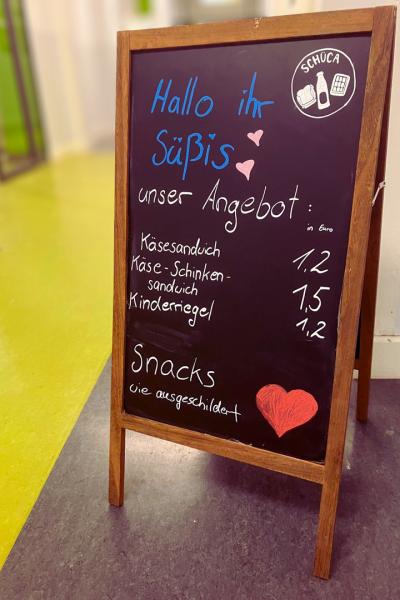 SCHÜCA
Hallo ihr
Süßis
unser Angebot:
in Euro
Käsesandwich 1,2
Käse-Schinken-
sandwich 1,5
Kinderriegel 1,2
Snacks
wie ausgeschildert